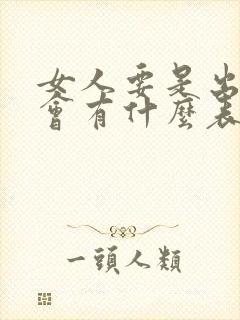 女人要是出
會有什麼表
一頭人類